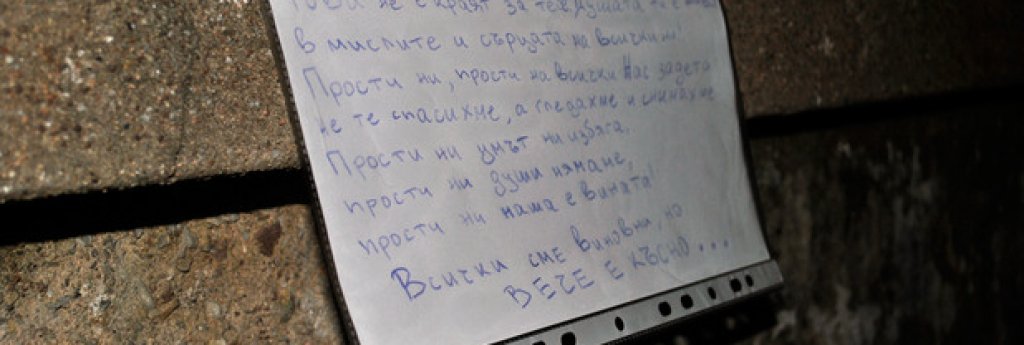 не е краят за теб, душата ти е
в мислите и сърцата на всички ни!
Прости ни, прости на всички нас задето
не те спасихме, а гледахме и снимахме
Прости ни умът ни избяга,
прости ни души нямаме,
прости ни наша е вината!
Всички сме виновни, но
ВЕЧЕ Е КЪСНО...